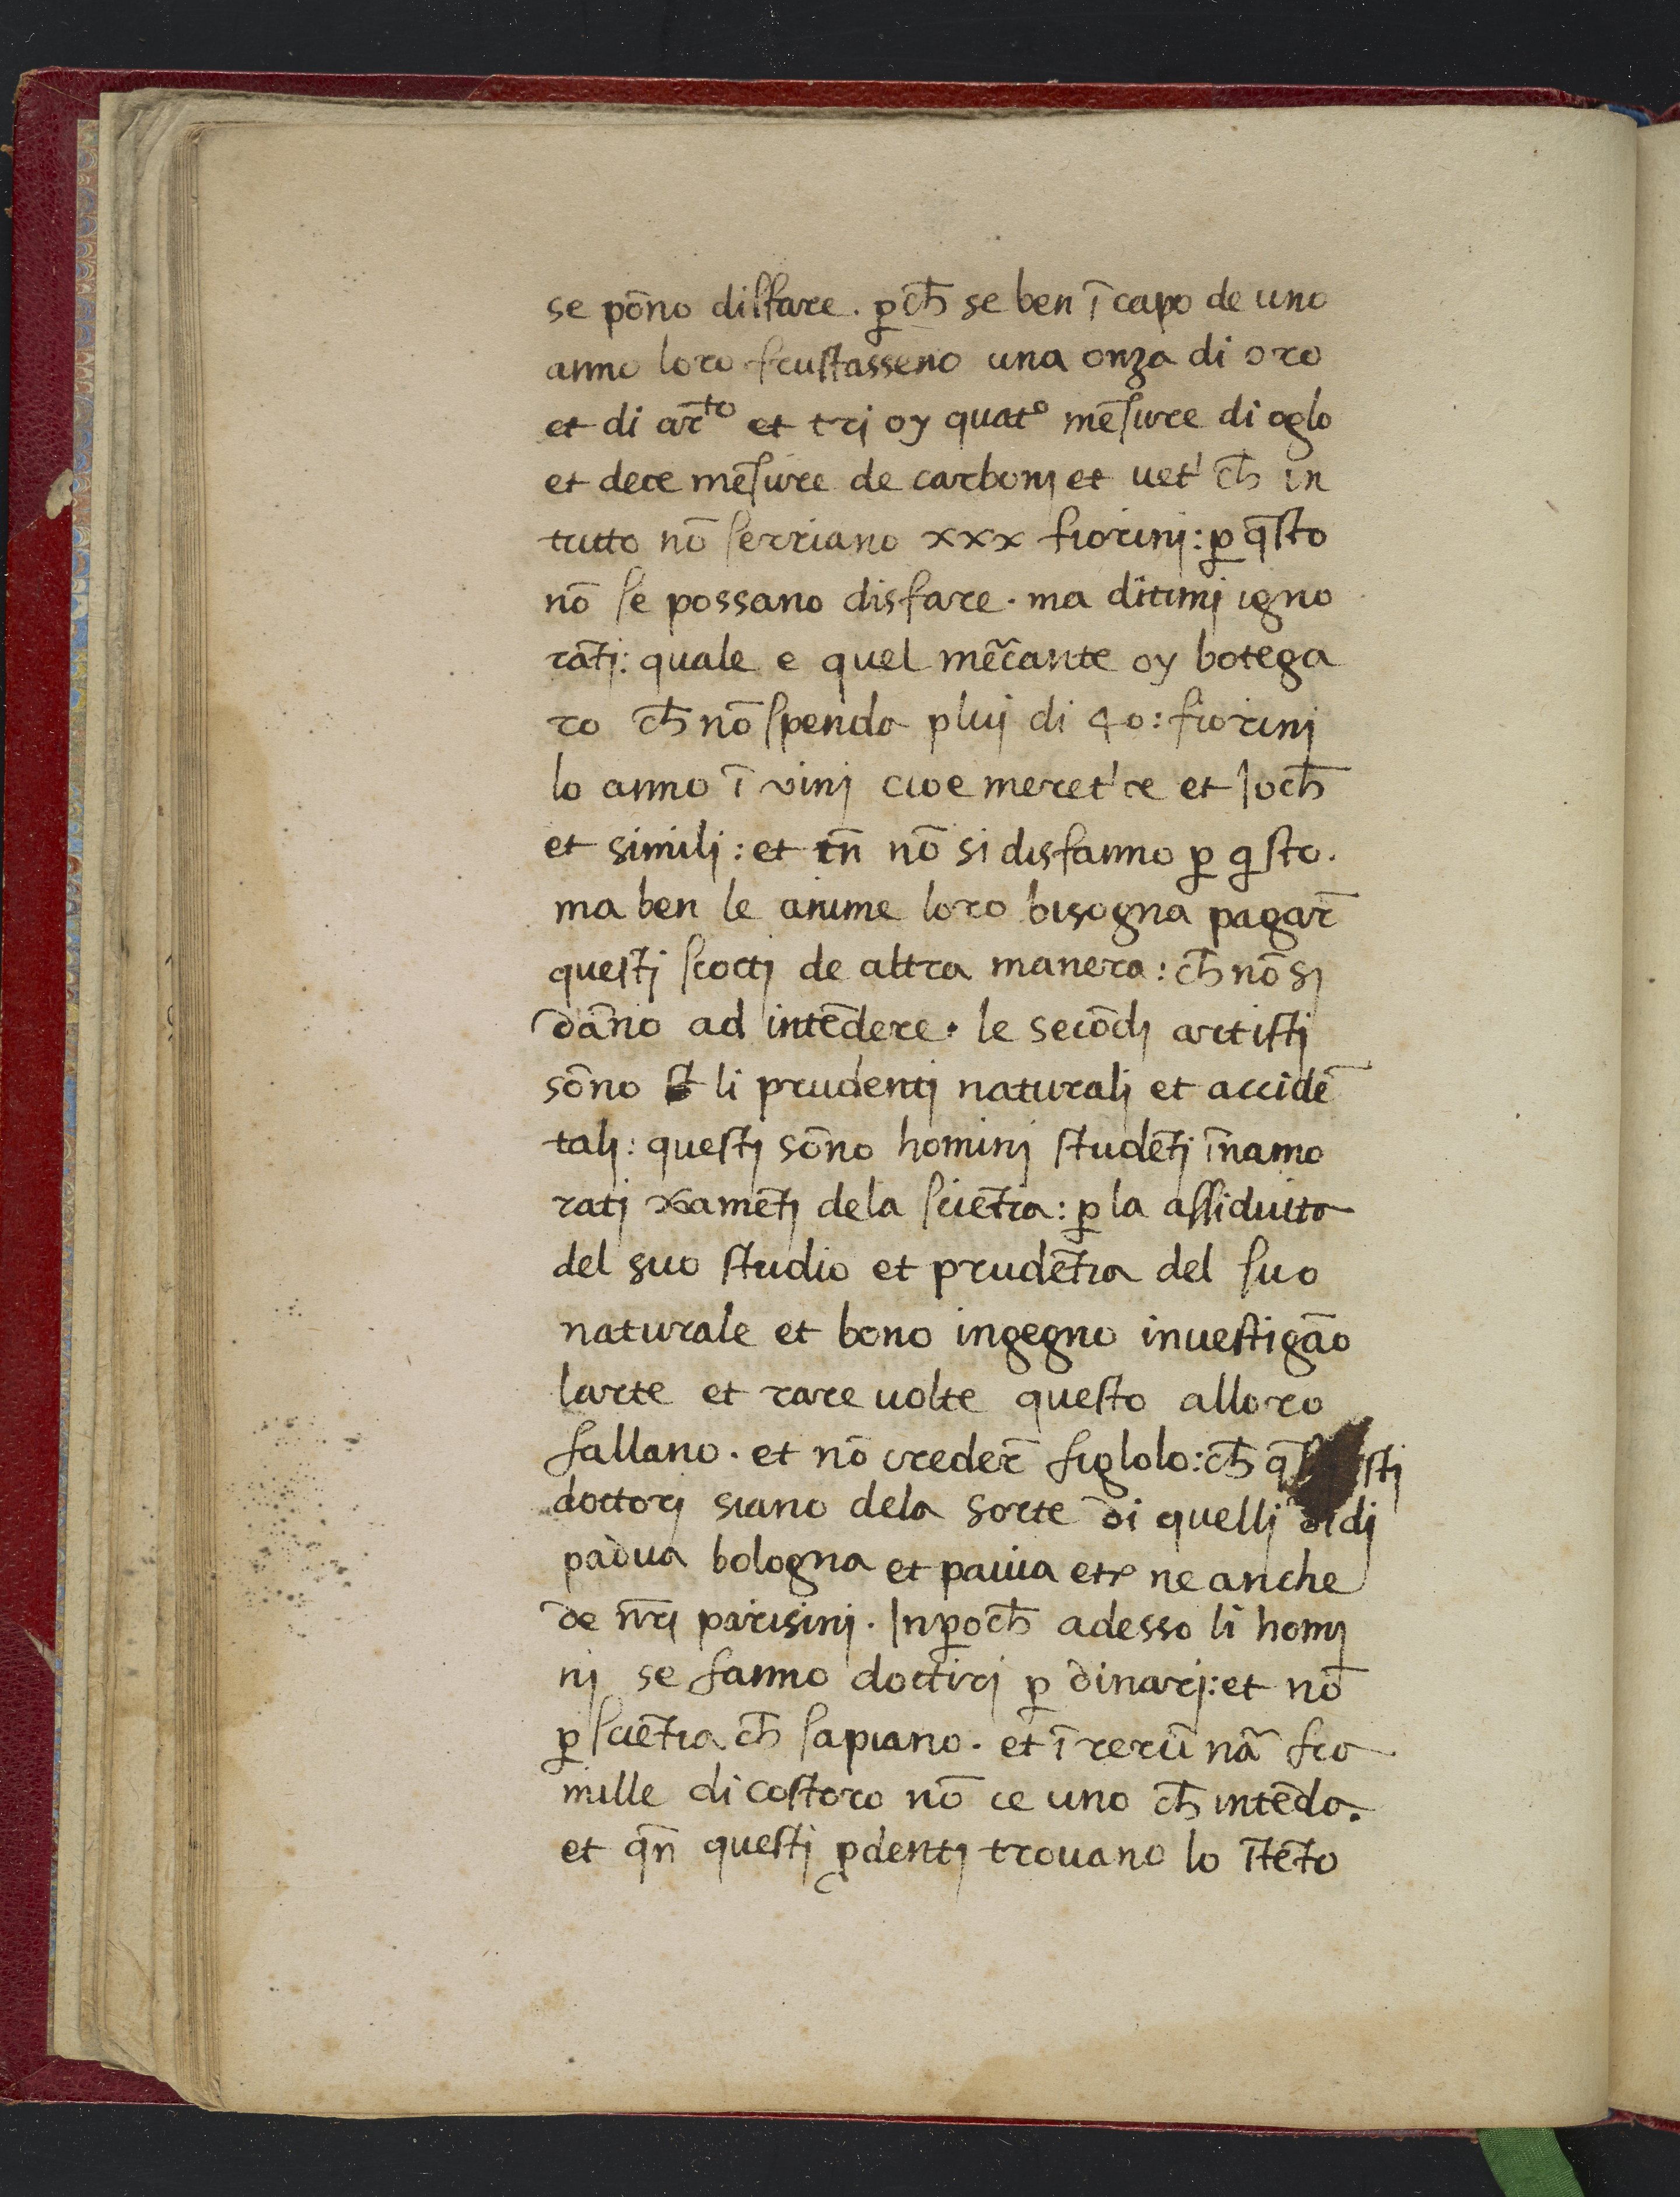 se põno disfare. ꝑch̄ se ben ī capo de uno
anno loro frustasseno una onza di oro
et di ar̄to et trj oy quato mēsure di oglo
et dece mēsure de carbonj et uet' ch̄ in
tutto nō serriano xxx fiorinj: ꝑ q̄sto
nō se possano disfare. ma ditimj igno
rātj: quale e quel mēcante oy botega
ro ch̄ nō spenda pluj di 40: fiorinj
lo anno ī vinj cioe meret'ce et Joch̄
et similj: et tn̄ nō si disfanno ꝑ q̄sto.
ma ben le anime loro bisogna pagar̄
questj scottj de altra manera: ch̄ nō sj
dāno ad intēdere. le secōdj artistj
sōno li prudentj naturalj et accidē
talj: questj sōno hominj studētj īnamo
ratj xamētj dela sciētia: ꝑ la assiduita
del suo studio et prudētia del suo
naturale et bono ingegno inuestigāo
larte et rare uolte questo alloro
fallano. et nō creder̄ figlolo: ch̄ q̄stj
doctorj siano dela sorte di quellj di dj
padua bologna et pauia etc ne anche
de nr̄j parisinj. Inꝑoch̄ adesso li homj
nj se fanno doctirj ꝑ dinarj: et nō
ꝑ sciētia ch̄ sapiano. et ī rerū nā fra
mille di costoro nō ce uno ch̄ intēda.
et qn̄ questj ꝓdentj trouano lo ītēto